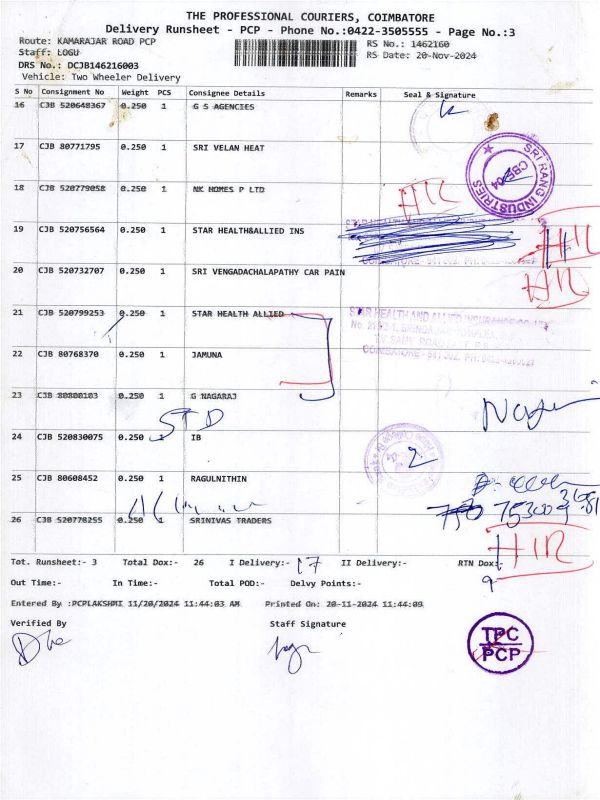 THE PROFESSIONAL COURIERS, COIMBATORE
Delivery Runsheet - PCP - Phone No.:0422-3505555 - Page No.:3
Route: KAMARAJAR ROAD PCP RS No.: 1462160
Staff: LOGU RS Date: 20-Nov-2024
DRS No.: DCJB146216003
Vehicle: Two Wheeler Delivery
S No Consignment No Weight PCS Consignee Details Remarks Seal & Signature
16 CJB 520648367 0.250 1 G S AGENCIES
17 CJB 80771795 0.250 1 SRI VELAN HEAT
SRI RANG INDUSTRIES
CBE-04
18 CJB 520779058 0.250 1 NK HOMES P LTD
HR
19 CJB 520756564 0.250 1 STAR HEALTH&ALLIED INS
HR
20 CJB 520732707 0.250 1 SRI VENGADACHALAPATHY CAR PAIN
HR
21 CJB 520799253 0.250 1 STAR HEALTH ALLIED
STAR HEALTH AND ALLIED INSURANCE CO LTD
22 CJB 80768370 0.250 1 JAMUNA
23 CJB 80800103 0.250 1 G NAGARAJ
STD
24 CJB 520830075 0.250 1 IB
25 CJB 80608452 0.250 1 RAGULNITHIN
26 CJB 520778255 0.250 1 SRINIVAS TRADERS
HR
Tot. Runsheet:- 3 Total Dox:- 26 I Delivery:- 17 II Delivery:- RTN Dox:- 9
Out Time:- In Time:- Total POD:- Delvy Points:-
Entered By :PCPLAKSHMI 11/20/2024 11:44:03 AM Printed On: 20-11-2024 11:44:09
Verified By Staff Signature
TPC
PCP